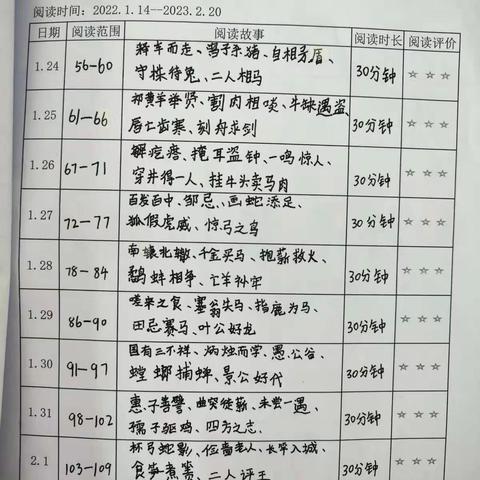 阅读时间：2022.1.14--2023.2.20
日期 阅读范围 阅读故事 阅读时长 阅读评价
1.24 56-60 弃车而走、曾子杀猪、自相矛盾、
守株待兔、二人相马 30分钟 ☆ ☆ ☆
1.25 61-66 祁黄羊举贤、割肉相啖、牛缺遇盗、
唇亡齿寒、刻舟求剑 30分钟 ☆ ☆ ☆
1.26 67-71 解疙瘩、掩耳盗钟、一鸣惊人、
穿井得一人、挂牛头卖马肉 30分钟 ☆ ☆ ☆
1.27 72-77 百发百中、邹忌、画蛇添足、
狐假虎威、惊弓之鸟 30分钟 ☆ ☆ ☆
1.28 78-84 南辕北辙、千金买马、抱薪救火、
鹬蚌相争、亡羊补牢 30分钟 ☆ ☆ ☆
1.29 86-90 嗟来之食、塞翁失马、指鹿为马、
田忌赛马、叶公好龙 30分钟 ☆ ☆ ☆
1.30 91-97 国有三不祥、炳烛而学、愚公谷、
螳螂捕蝉、景公好弋 30分钟 ☆ ☆ ☆
1.31 98-102 惠子善譬、曲突徙薪、未尝一遇、
孺子驱鸡、四方之志 30分钟 ☆ ☆ ☆
2.1 103-109 杯弓蛇影、俭啬老人、长竿入城、
食笋煮箦、二人评王 30分钟 ☆ ☆ ☆